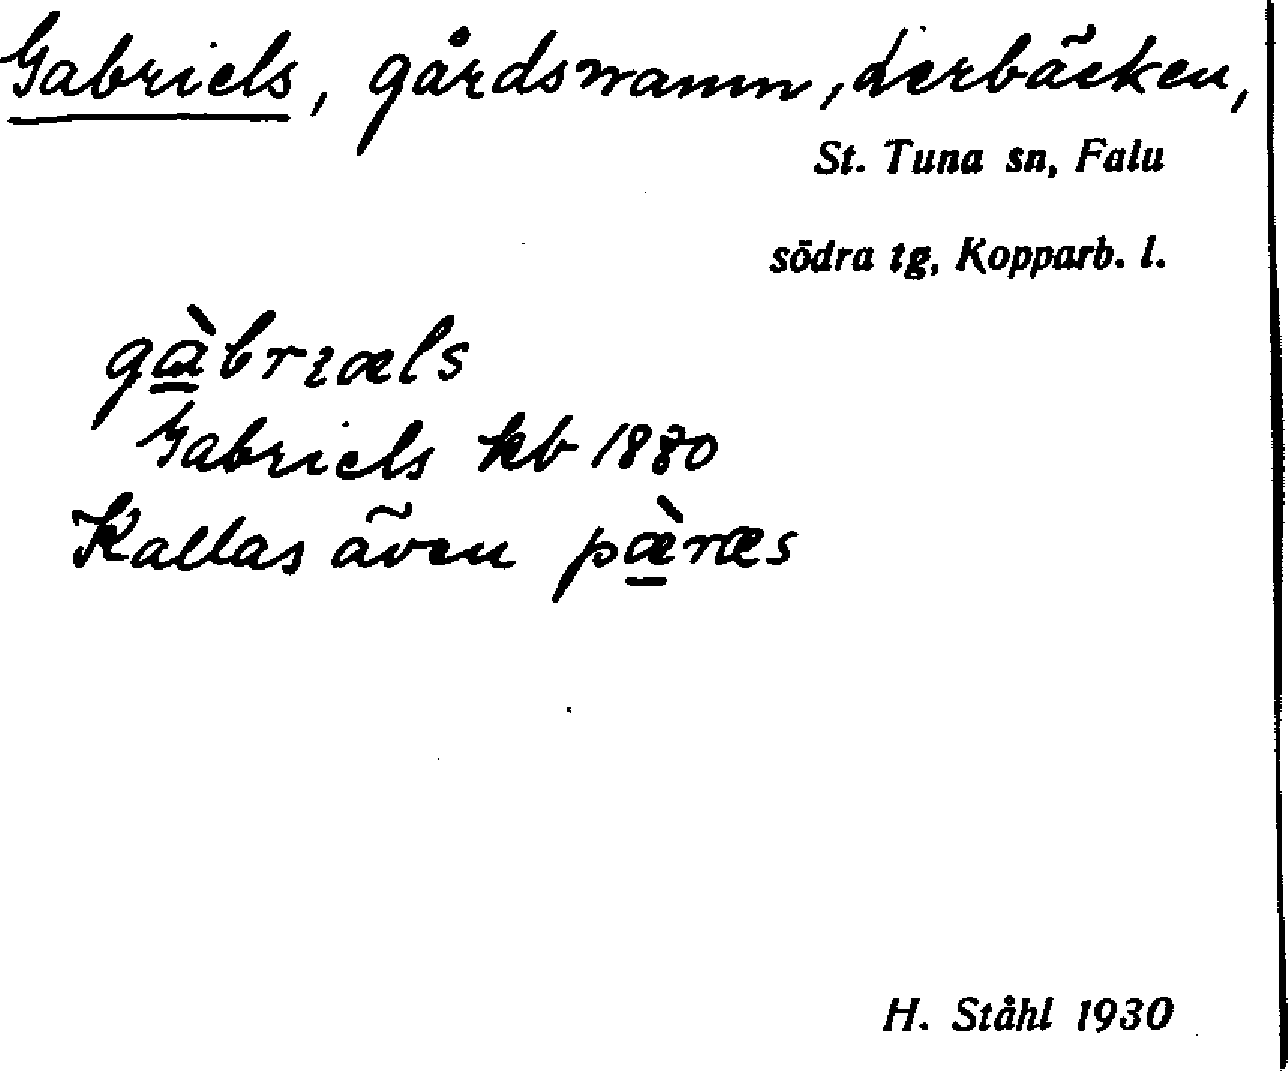 Gabriels, gårdsnamn, Lerbäcken,
St. Tuna sn, Falu
södra tg, Kopparb. l.
gàbrıæls
Gabriels kb 1880
Kallas även pæ̀ræs
H. Ståhl 1930